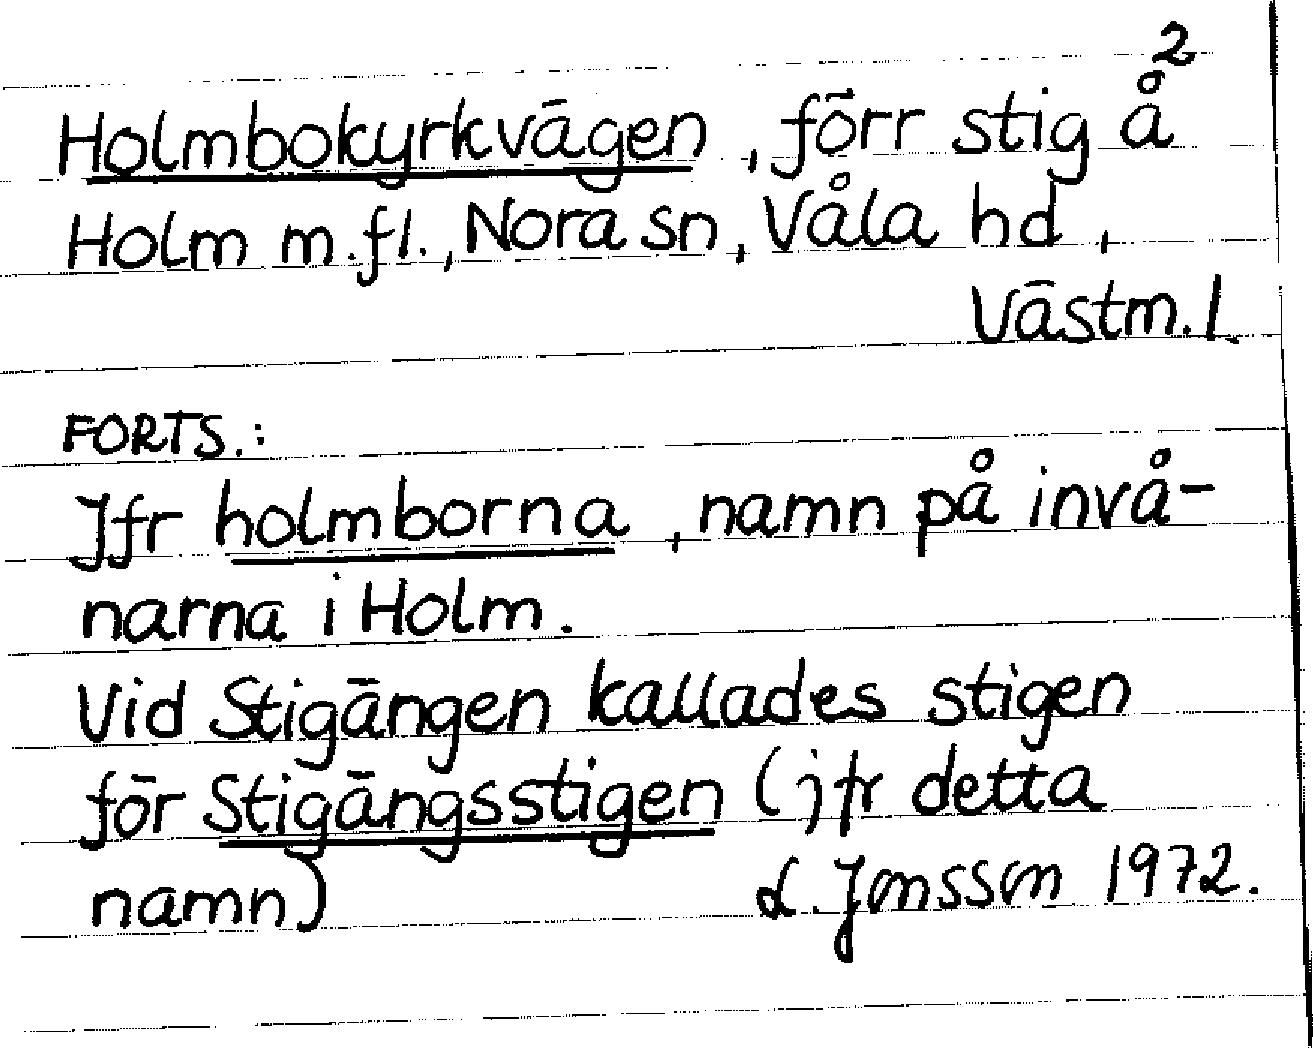 2
Holmbokyrkvägen, förr stig å
Holm m.fl., Nora sn, Våla hd,
Västm. l.
FORTS.:
Jfr holmborna, namn på invå-
narna i Holm.
Vid Stigängen kallades stigen
för Stigängsstigen (jfr detta
namn)
L. Jonsson 1972.